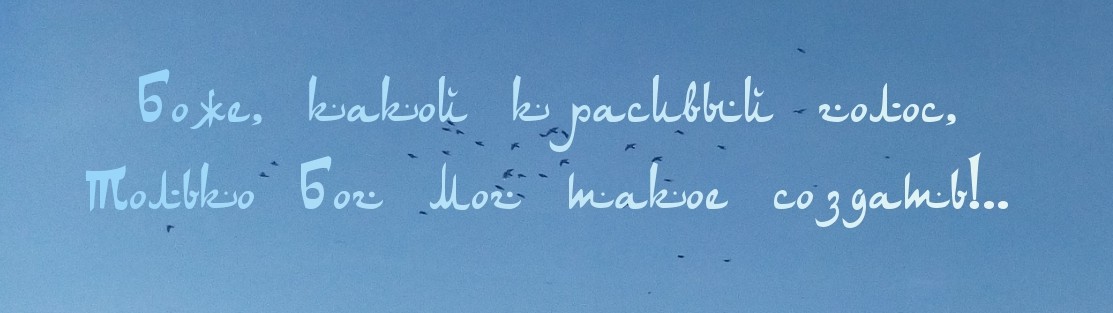 Боже, какой красивый голос,
Только Бог Мог такое создать!..